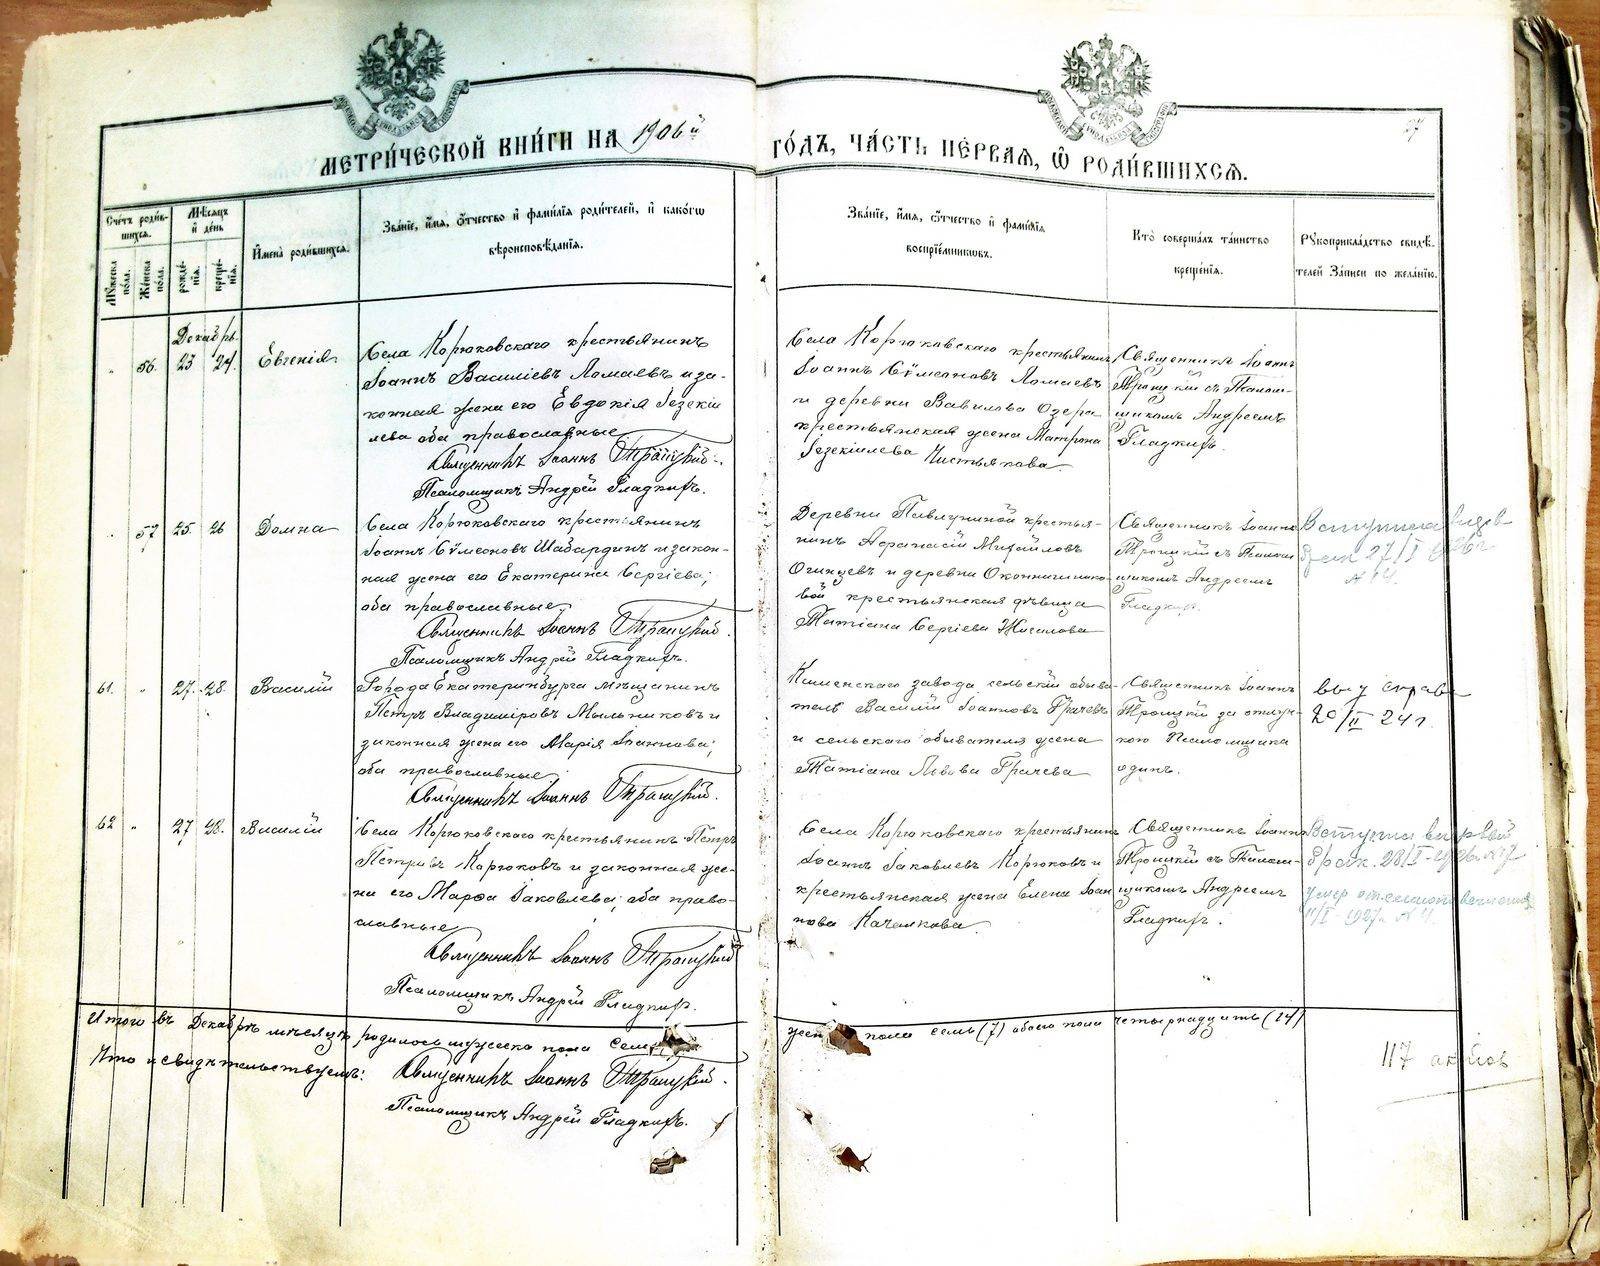 МЕТРИ́ЧЕСКОЙ КНИ́ГИ НА 1906й
ГО́ДЪ, ЧА́СТЬ ПЕ́РВАЯ, Ѡ҆ РОДИ́ВШИХСЯ.
27
Сче́тъ роди́в-
шихся.
Му́жеска по́ла.
Же́нска по́ла.
Мѣ́сяцъ
и҆ де́нь
рожде́нїя.
креще́нїя.
И҆мена̀ роди́вшихся.
Зва́нїе, и҆́мя, ѻ҆́тчество и҆ фами́лїя роди́телей, и҆ како́гѡ
вѣроисповѣ́данїя.
Зва́нїе, и҆́мя, ѻ҆́тчество и҆ фами́лїя
воспрїе́мниковъ.
Кто̀ соверша́лъ та́инство
креще́нїя.
Рꙋкоприкла́дство свидѣ́-
телей За́писи по жела́нїю.
Декабрь
„ 56. 23 24. Евгенія
Села Корюковскаго крестьянинъ
Іоаннъ Василіевъ Ломаевъ и за-
конная жена его Евдокія Іезекіи
лева оба православные
Священникъ Іоаннъ Троицкій.
Псаломщикъ Андрей Гладкихъ.
Села Корюковскаго крестьянинъ
Іоаннъ Сѵмеоновъ Ломаевъ
и деревни Вавилова Озера
крестьянская жена Матрона
Іезекіилева Чистякова
Священникъ Іоаннъ
Троицкій съ Псалом-
щикомъ Андреемъ
Гладкихъ.
„ 57 25. 26 Домна
Села Корюковскаго крестьянинъ
Іоаннъ Сѵмеоновъ Шабардинъ и закон-
ная жена его Екатерина Сергіева;
оба православные
Священникъ Іоаннъ Троицкій.
Псаломщикъ Андрей Гладкихъ.
Деревни крестья-
нинъ Афанасій Михайловъ
и деревни
вой крестьянская дѣвица
Татіана Сергіева
Священникъ Іоаннъ
Троицкій съ Псалом
щикомъ Андреемъ
Гладкихъ.
Вступила в
брак 27/I 1926 г.
№ 14.
61. „ 27. 28. Василій
Города Екатеринбурга мѣщанинъ
Петръ Владиміровъ Мыльниковъ и
законная жена его Марія Іоаннова;
оба православные
Священникъ Іоаннъ Троицкій.
завода сельскій обыва-
тель Василій Іоанновъ Грачевъ
и сельскаго обывателя жена
Татіана Львова Грачева
Священникъ Іоаннъ
Троицкій за отлуч-
кою Псаломщика
одинъ.
20/II 24 г.
62 „ 27 28. Василій
Села Корюковскаго крестьянинъ Петръ
Петровъ Корюковъ и законная же-
на его Марѳа Іаковлева; оба право-
славные
Священникъ Іоаннъ Троицкій
Псаломщикъ Андрей Гладкихъ.
Села Корюковскаго крестьянинъ
Іоаннъ Іаковлевъ Корюковъ и
крестьянская жена Елена Іоан
нова Качалкова.
Священникъ Іоаннъ
Троицкій съ Псалом-
щикомъ Андреемъ
Гладкихъ.
Вступил в первый
брак. 28/I - 1926 г. № 7
умер от
11/I - 1927 г. № 4.
Итого въ Декабрѣ мѣсяцѣ родилось мужеска пола семь
пола семь (7) обоего пола четырнадцать (14)
Что и свидѣтельствуемъ:
Священникъ Іоаннъ Троицкій.
Псаломщикъ Андрей Гладкихъ.
117 актов